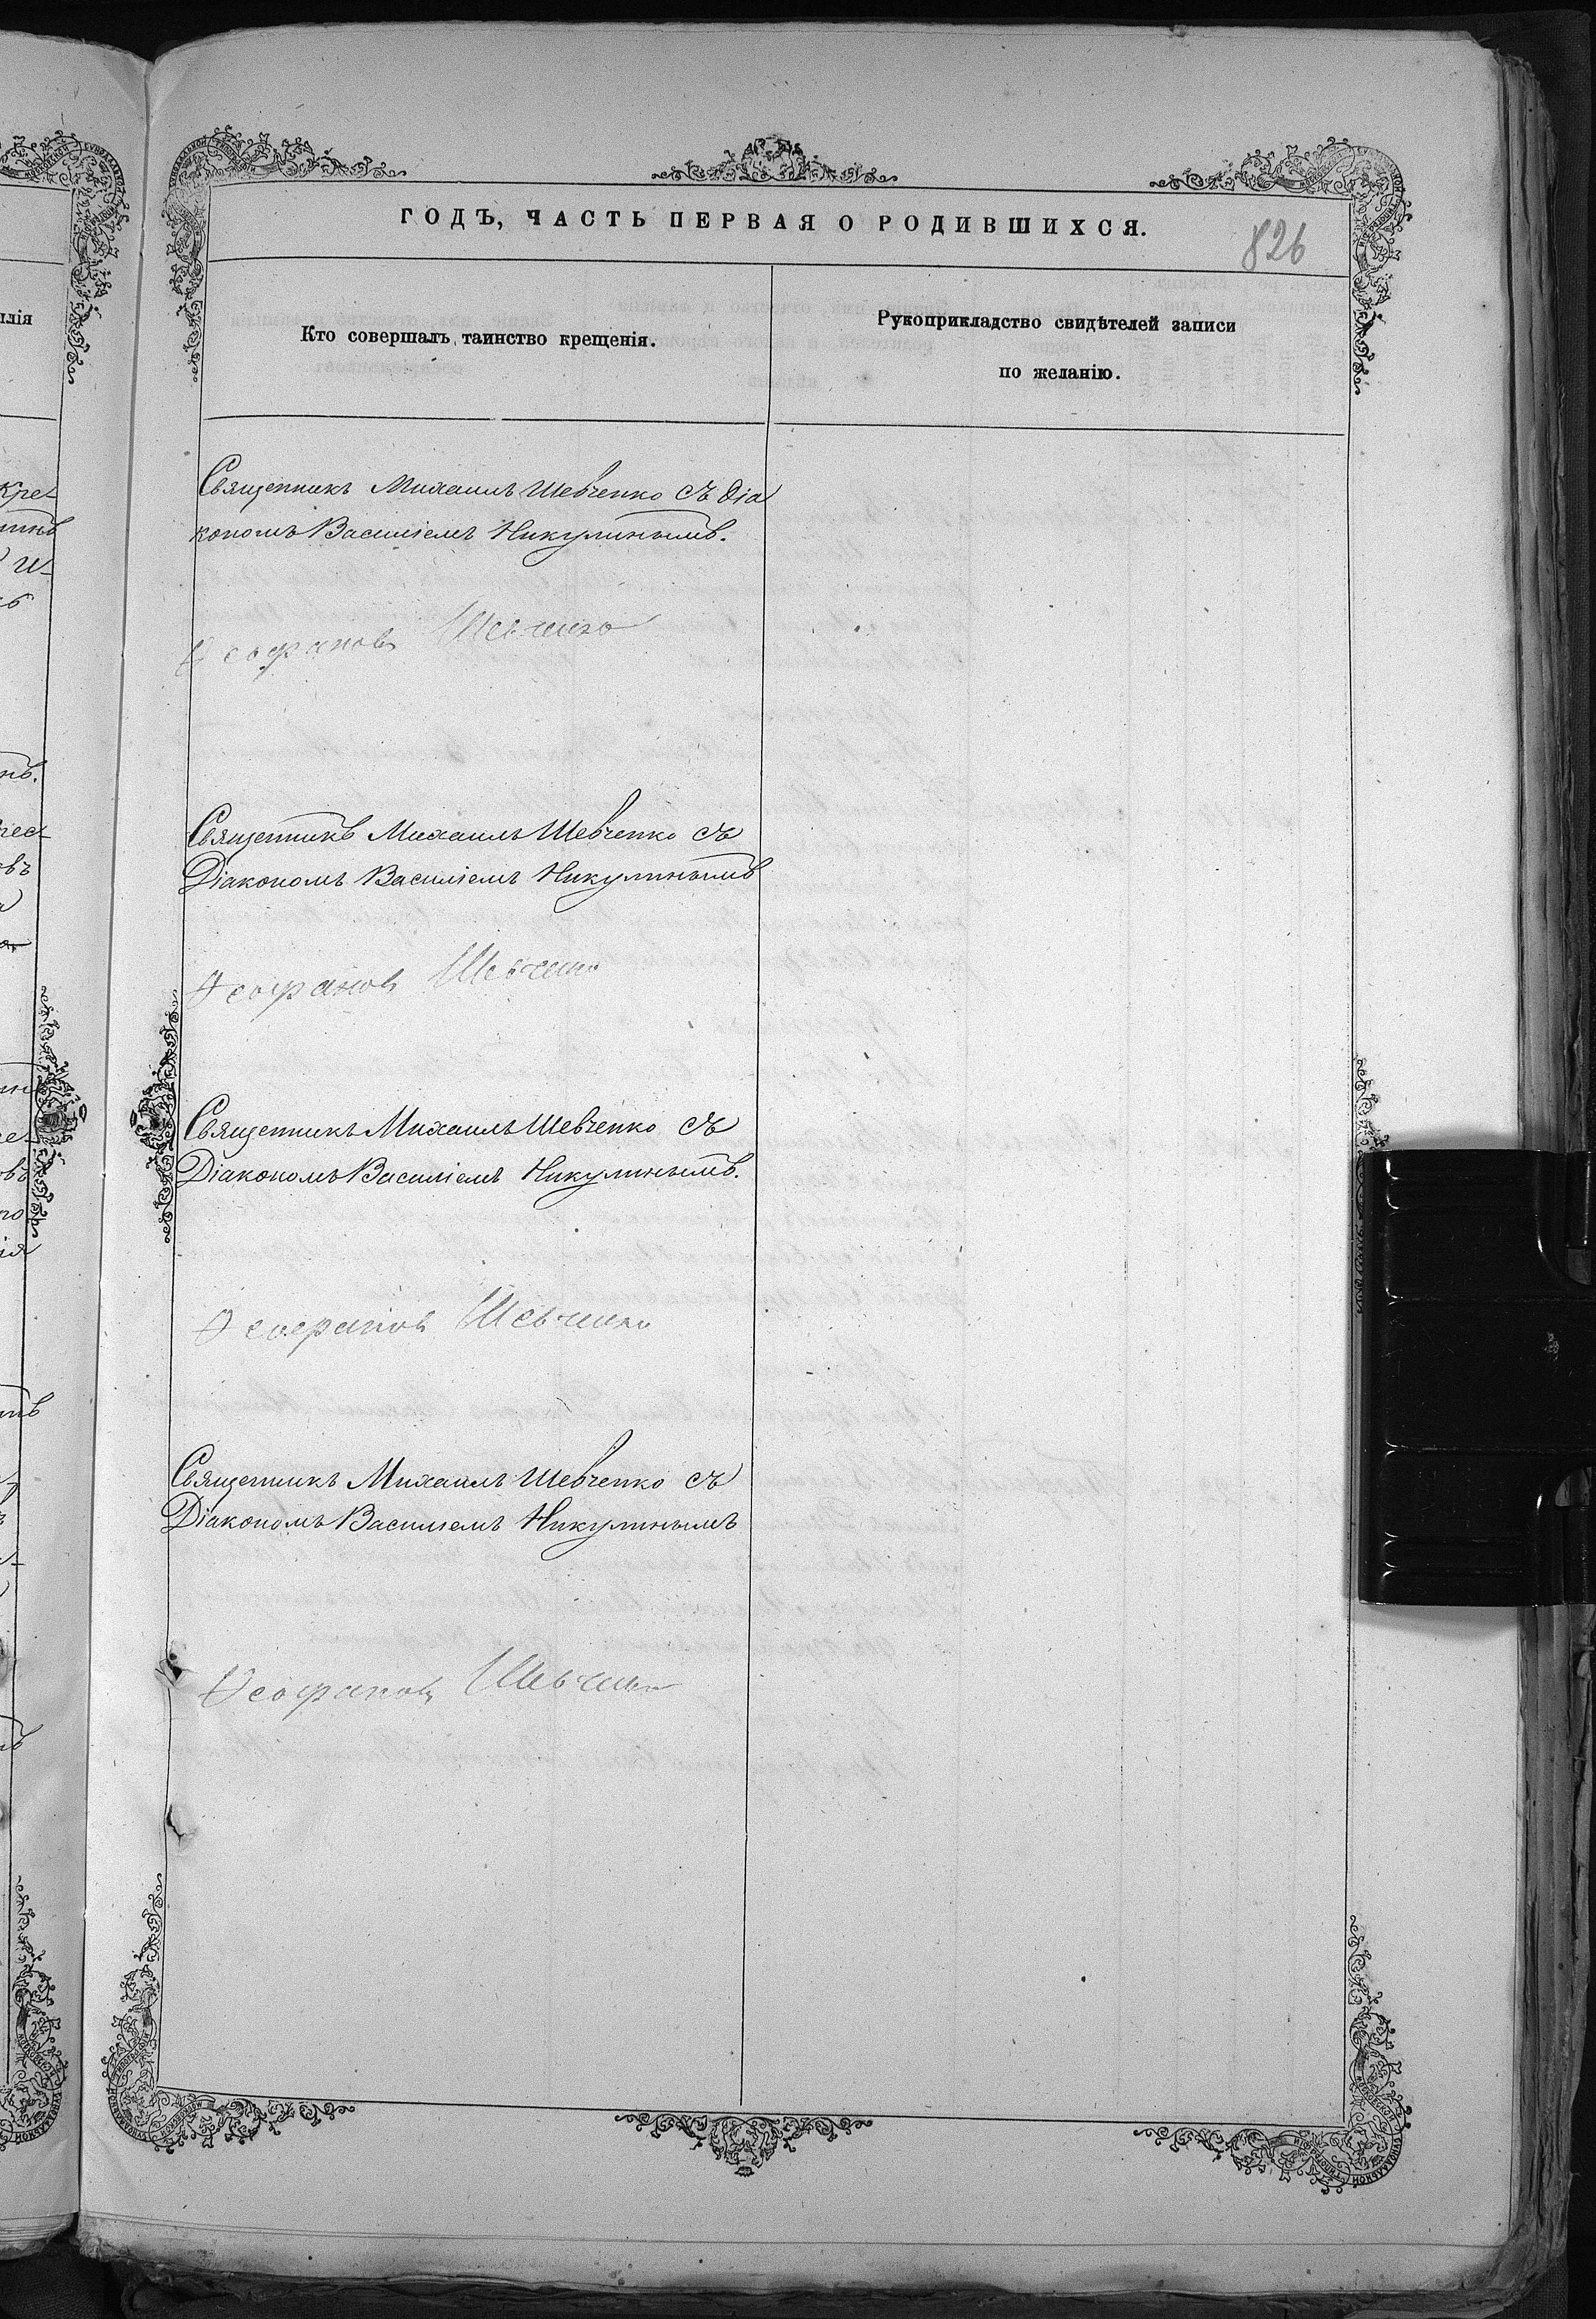 ГОДЪ, ЧАСТЬ ПЕРВАЯ О РОДИВШИХСЯ.
826
Кто совершалъ таинство крещенія.
Рукоприкладство свидѣтелей записи
по желанію.
Священникъ Михаилъ Шевченко съ Діа
кономъ Василіемъ Никулинымъ.
Ѳеофановъ Шевченко
Священникъ Михаилъ Шевченко съ
Діакономъ Василіемъ Никулинымъ
Ѳеофановъ Шевченко
Священникъ Михаилъ Шевченко съ
Діакономъ Василіемъ Никулинымъ.
Ѳеофановъ Шевченко
Священникъ Михаилъ Шевченко съ
Діакономъ Василіемъ Никулинымъ
Ѳеофановъ Шевченко